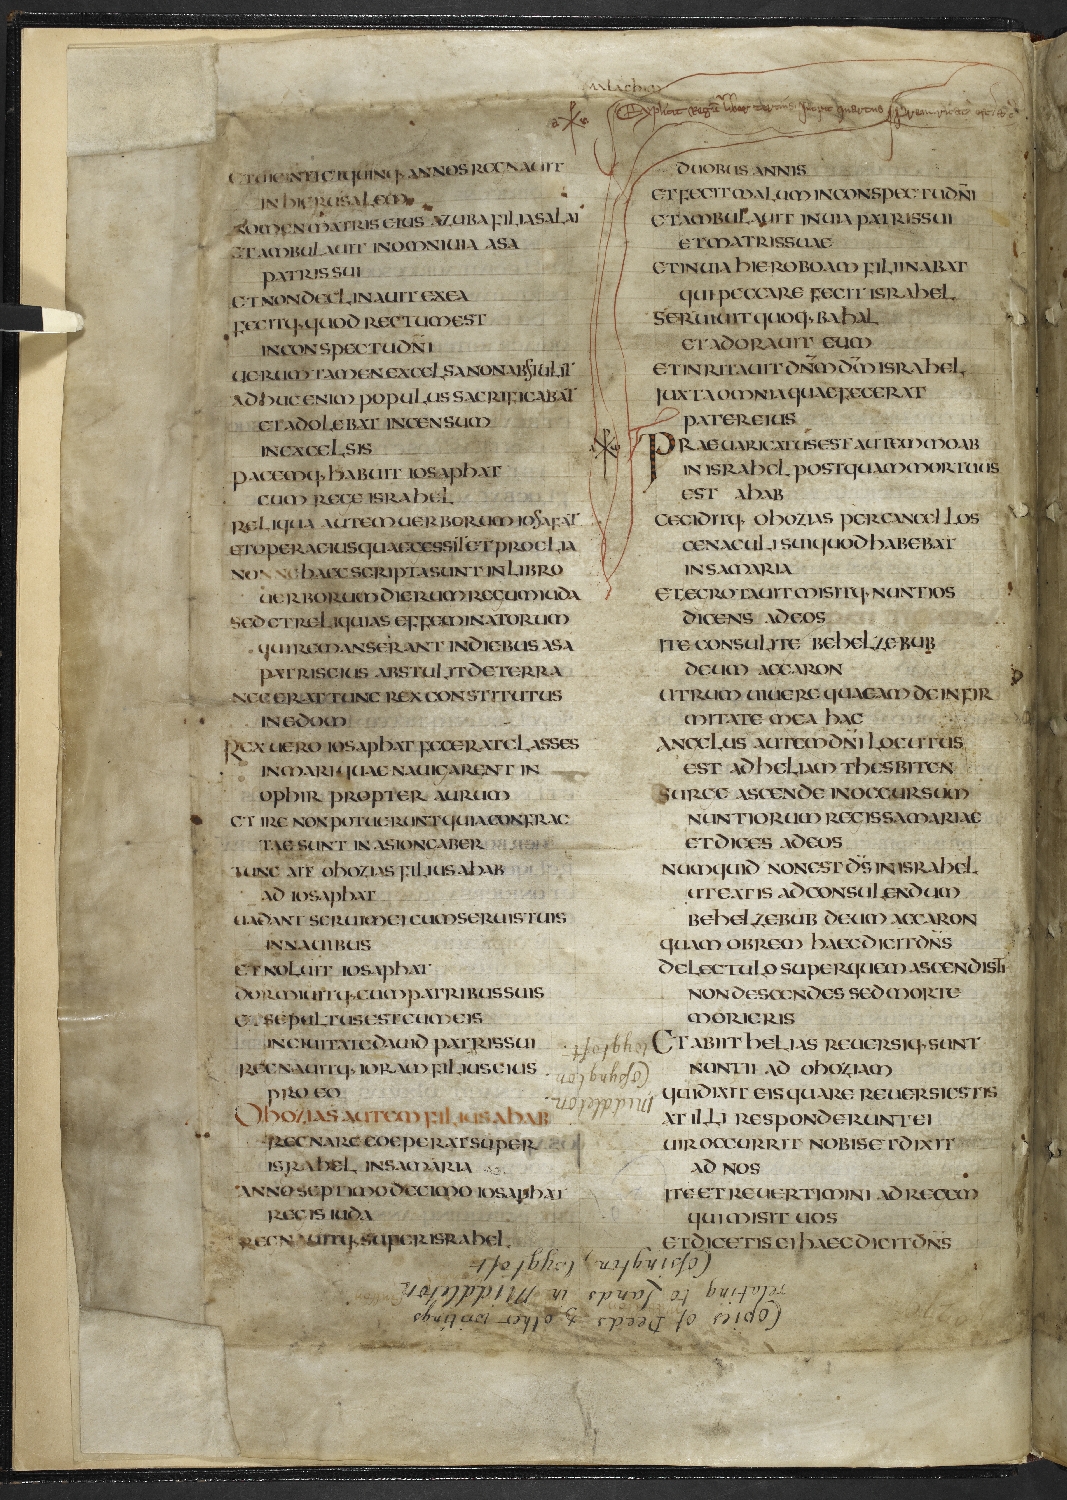 malachim
Explicit Regum liber tertius. Incipit quartus
ETUIGINTIETQUINQ· ANNOS REGNAUIT
INHIERUSALEM
NOMENMATRIS EIUS AZUBA FILIASALAI
ETAMBULAUIT INOMNIUIA ASA
PATRIS SUI
ET NON DECLINAUIT EXEA
FECITQ· QUOD RECTUMEST
INCONSPECTU DNI
UERUM TAMEN EXCELSA NON ABSTULIT
ADHUC ENIM POPULUS SACRIFICABAT
ETADOLEBAT INCENSUM
INEXCELSIS
PACEMQ· HABUIT IOSAPHAT
CUM REGE ISRAHEL
RELIQUA AUTEM UERBORUM IOSAFAT
ETOPERAEIUSQUAEGESSIT ET PROELIA
NONNE HAEC SCRIPTA SUNT IN LIBRO
UERBORUM DIERUM REGUM IUDA
SED ET RELIQUIAS EFFEMINATORUM
QUI REMANSERANT INDIEBUS ASA
PATRISEIUS ABSTULIT DE TERRA
NEC ERAT TUNC REX CONSTITUTUS
IN EDOM
REX UERO IOSAPHAT FECERAT CLASSES
IN MARI QUAE NAUIGARENT IN
OPHIR PROPTER AURUM
ET IRE NON POTUERUNT QUIA CONFRAC
TAE SUNT IN ASIONGABER
TUNC AIT OHOZIAS FILIUS AHAB
AD IOSAPHAT
UADANT SERUI MEI CUM SERUIS TUIS
IN NAUIBUS
ET NOLUIT IOSAPHAT
DORMIUITQ· CUM PATRIBUS SUIS
ET SEPULTUS EST CUM EIS
IN CIUITATE DAUID PATRIS SUI
REGNAUITQ· IORAM FILIUS EIUS
PRO EO
OHOZIAS AUTEM FILIUS AHAB
REGNARE COEPERAT SUPER
ISRAHEL IN SAMARIA
ANNO SEPTIMO DECIMO IOSAPHAT
REGIS IUDA
REGNAUITQ· SUPER ISRAHEL
DUOBUS ANNIS
ET FECIT MALUM IN CONSPECTU DNI
ET AMBULAUIT IN UIA PATRIS SUI
ET MATRIS SUAE
ET IN UIA HIEROBOAM FILII NABAT
QUI PECCARE FECIT ISRAHEL
SERUIUIT QUOQ· BAHAL
ET ADORAUIT EUM
ET INRITAUIT DNM DM ISRAHEL
IUXTA OMNIA QUAE FECERAT
PATER EIUS
PRAEUARICATUS EST AUTEM MOAB
IN ISRAHEL POSTQUAM MORTUUS
EST AHAB
CECIDITQ· OHOZIAS PER CANCELLOS
CENACULI SUI QUOD HABEBAT
IN SAMARIA
ET EGROTAUIT MISITQ· NUNTIOS
DICENS AD EOS
ITE CONSULITE BEHELZEBUB
DEUM ACCARON
UTRUM UIUERE QUAEAM DE INFIR
MITATE MEA HAC
ANGELUS AUTEM DNI LOCUTUS
EST AD HELIAM THESBITEN
SURGE ASCENDE IN OCCURSUM
NUNTIORUM REGIS SAMARIAE
ET DICES AD EOS
NUMQUID NON EST DS IN ISRAHEL
UT EATIS AD CONSULENDUM
BEHELZEBUB DEUM ACCARON
QUAM OBREM HAEC DICIT DNS
DE LECTULO SUPER QUEM ASCENDISTI
NON DESCENDES SED MORTE
MORIERIS
ET ABIIT HELIAS REUERSIQ· SUNT
NUNTII AD OHOZIAM
QUI DIXIT EIS QUARE REUERSI ESTIS
AT ILLI RESPONDERUNT EI
UIR OCCURRIT NOBIS ET DIXIT
AD NOS
ITE ET REUERTIMINI AD REGEM
QUI MISIT UOS
ET DICETIS EI HAEC DICIT DNS
Middleton.
Cossington
Copies of Deeds & other writings
relating to Lands in Middleton
Cossington,